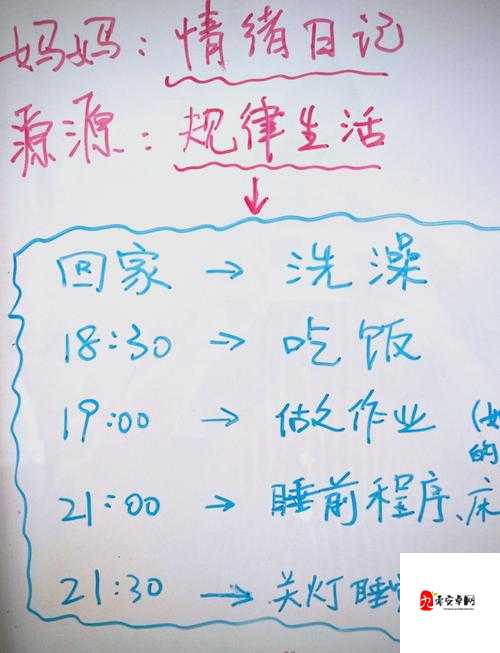 妈妈：情绪日记
源源：规律生活
↓
回家 → 洗澡
18:30 → 吃饭
19:00 → 做作业 (
的
21:00 → 睡前程序、床
21:30 → 关灯睡
零安卓网